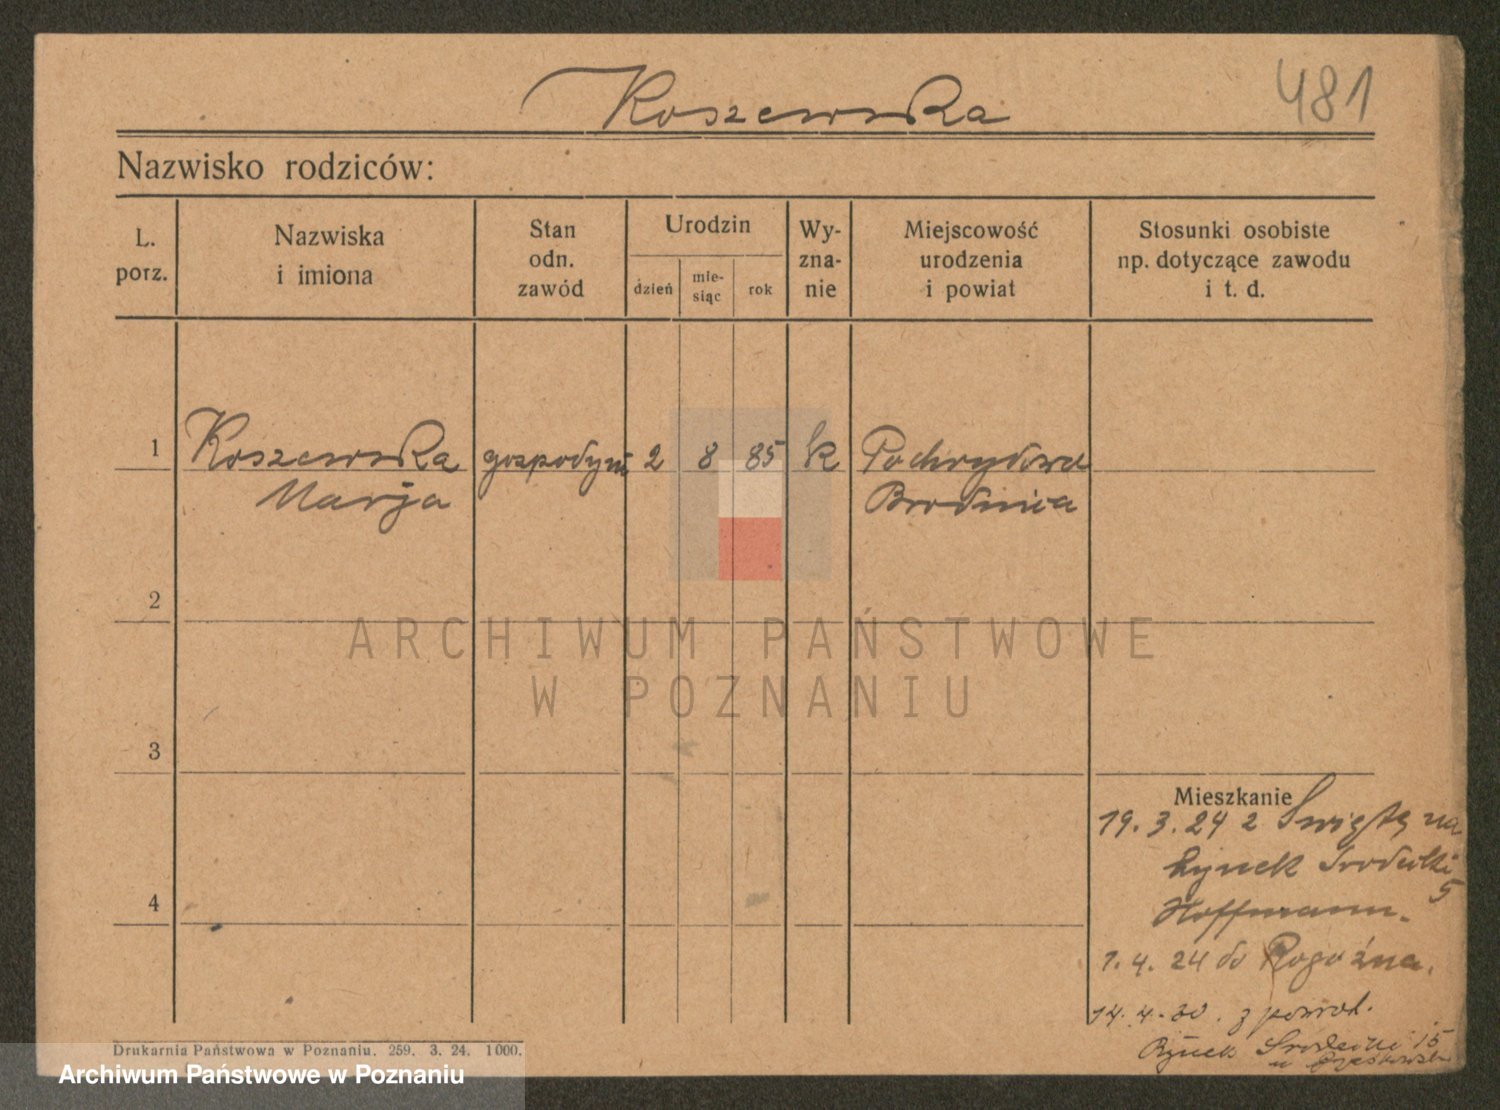 Koszewska
481
Nazwisko rodziców:
L. porz.
Nazwiska i imiona
Stan odn. zawód
Urodzin
dzień
mie-siąc
rok
Wy-zna-nie
Miejscowość urodzenia i powiat
Stosunki osobiste np. dotyczące zawodu i t. d.
1 Koszewska gospodyni 2 8 85 k
Marja Brodnica
2
ARCHIWUM PAŃSTWOWE
W POZNANIU
3
Mieszkanie
19.3.24 z na
Rynek 5
Hoffmann.
4
1.4.24 do Rogoźna.
14.4.30. z powrot.
Rynek 15
Drukarnia Państwowa w Poznaniu. 259. 3. 24. 1000.
Archiwum Państwowe w Poznaniu